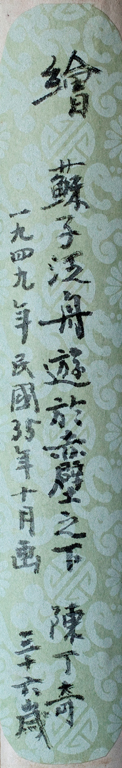 繪 蘇子泛舟遊於赤壁之下 陳丁奇
一九四九年民國35年十月畫 三十六歲